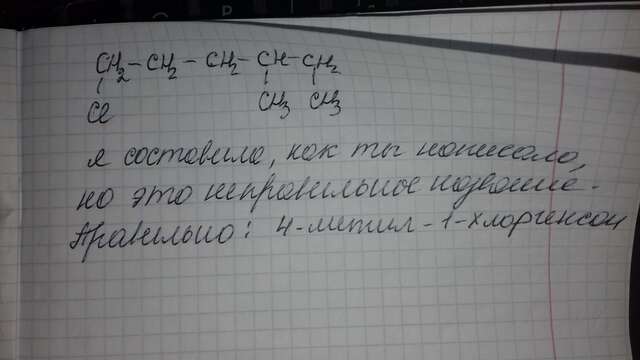 CH₂ - CH₂ - CH₂ - CH - CH₂
Cl CH₃ CH₃
я составила, как ты написала,
но это неправильное название.
Правильно: 4-метил-1-хлоргексан